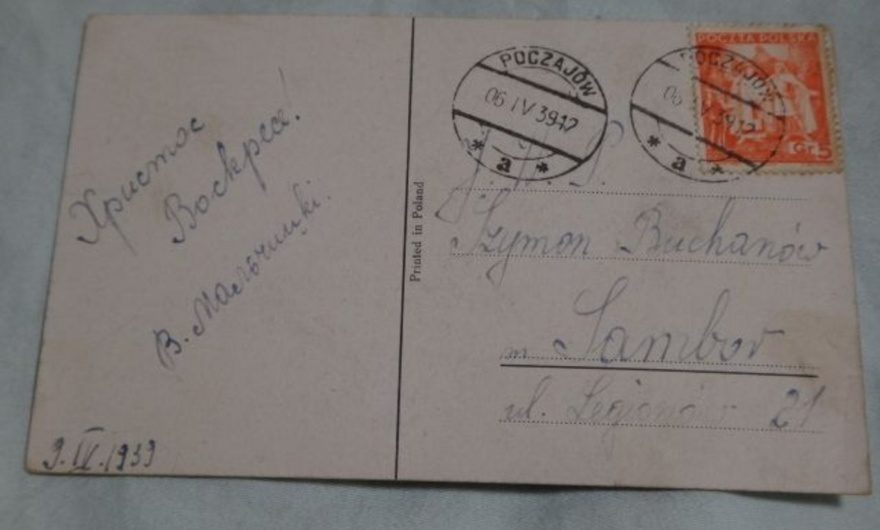 Христос
Воскрес!
В.
9.IV.1939
Printed in Poland
POCZTA POLSKA
POCZAJÓW
06 IV 39 12
* a *
POCZAJÓW
06 IV 39 12
* a *
J. W. P.
Szymon Buchanów
m Sambor
ul. Legjonów 21